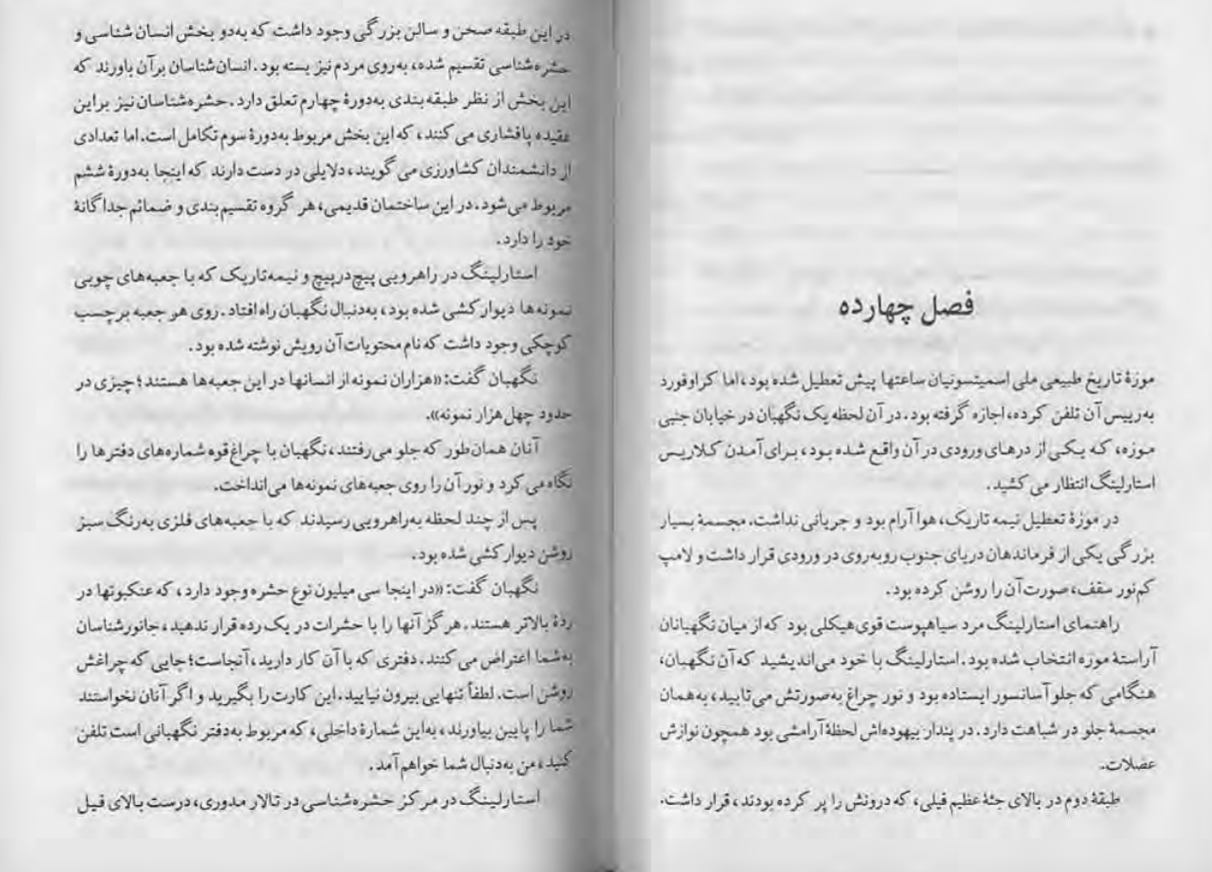 فصل چهارده
موزهٔ تاریخ طبیعی ملی اسمیتسونیان ساعتها پیش تعطیل شده بود، اما کراوفورد
به‌رییس آن تلفن کرده، اجازه گرفته بود. در آن لحظه یک نگهبان در خیابان جنبی
موزه، که یکی از درهای ورودی در آن واقع شده بود، برای آمدن کلاریس
استارلینگ انتظار می‌کشید.
در موزهٔ تعطیل نیمه تاریک، هوا آرام بود و جریانی نداشت. مجسمهٔ بسیار
بزرگی یکی از فرماندهان دریای جنوب روبه‌روی در ورودی قرار داشت و لامپ
کم‌نور سقف، صورت آن را روشن کرده بود.
راهنمای استارلینگ مرد سیاهپوست قوی‌هیکلی بود که از میان نگهبانان
آراستهٔ موزه انتخاب شده بود. استارلینگ با خود می‌اندیشید که آن نگهبان،
هنگامی که جلو آسانسور ایستاده بود و نور چراغ به‌صورتش می‌تابید، به‌همان
مجسمهٔ جلو در شباهت دارد. در پندار بیهوده‌اش لحظهٔ آرامشی بود همچون نوازش
عضلات.
طبقهٔ دوم در بالای جثهٔ عظیم فیلی، که درونش را پر کرده بودند، قرار داشت.
در این طبقه صحن و سالن بزرگی وجود داشت که به‌دو بخش انسان شناسی و
حشره‌شناسی تقسیم شده، به‌روی مردم نیز بسته بود. انسان‌شناسان برآن باورند که
این بخش از نظر طبقه‌بندی به‌دورهٔ چهارم تعلق دارد. حشره‌شناسان نیز براین
عقیده پافشاری می‌کنند، که این بخش مربوط به‌دورهٔ سوم تکامل است. اما تعدادی
از دانشمندان کشاورزی می‌گویند، دلایلی در دست دارند که اینجا به‌دورهٔ ششم
مربوط می‌شود. در این ساختمان قدیمی، هر گروه تقسیم‌بندی و ضمائم جداگانهٔ
خود را دارد.
استارلینگ در راهرویی پیچ‌درپیچ و نیمه‌تاریک که با جعبه‌های چوبی
نمونه‌ها دیوارکشی شده بود، به‌دنبال نگهبان راه افتاد. روی هر جعبه برچسب
کوچکی وجود داشت که نام محتویات آن رویش نوشته شده بود.
نگهبان گفت: «هزاران نمونه از انسانها در این جعبه‌ها هستند؛ چیزی در
حدود چهل هزار نمونه».
آنان همان‌طور که جلو می‌رفتند، نگهبان با چراغ‌قوه شماره‌های دفترها را
نگاه می‌کرد و نور آن را روی جعبه‌های نمونه‌ها می‌انداخت.
پس از چند لحظه به‌راهرویی رسیدند که با جعبه‌های فلزی به‌رنگ سبز
روشن دیوارکشی شده بود.
نگهبان گفت: «در اینجا سی میلیون نوع حشره وجود دارد، که عنکبوتها در
ردهٔ بالاتر هستند. هرگز آنها را با حشرات در یک رده قرار ندهید، جانورشناسان
به‌شما اعتراض می‌کنند. دفتری که با آن کار دارید، آنجاست؛ جایی که چراغش
روشن است. لطفاً تنهایی بیرون نیایید. این کارت را بگیرید و اگر آنان نخواستند
شما را پایین بیاورند، به‌این شمارهٔ داخلی، که مربوط به‌دفتر نگهبانی است تلفن
کنید، من به‌دنبال شما خواهم آمد.
استارلینگ در مرکز حشره‌شناسی در تالار مدوری، درست بالای فیل